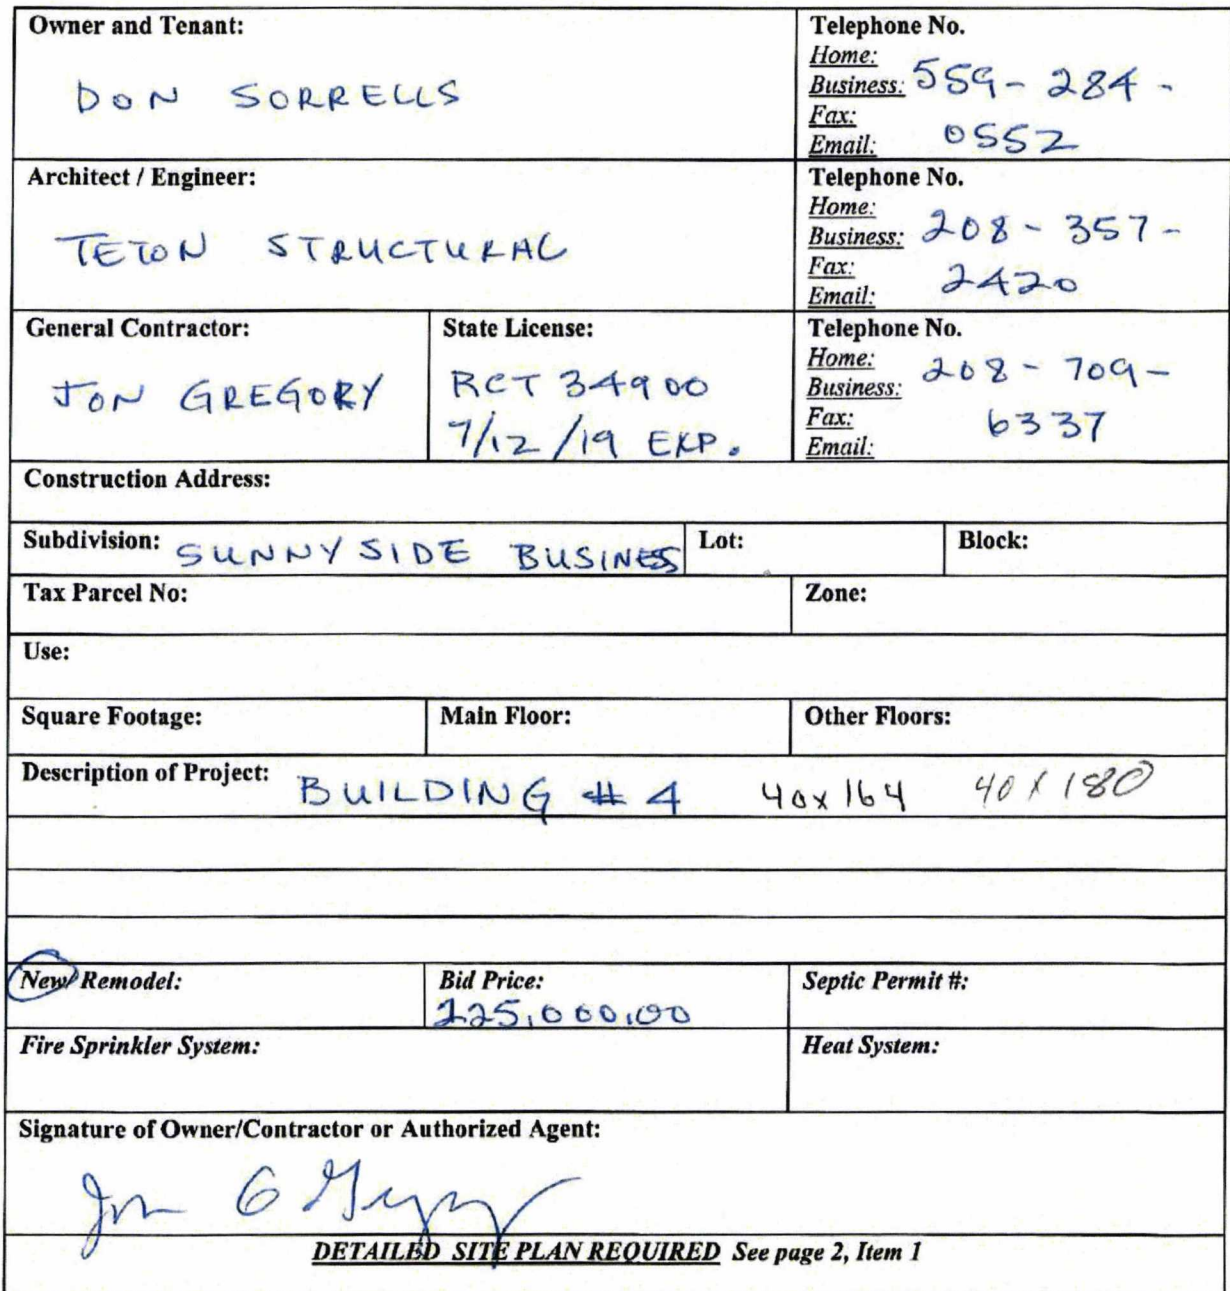 Owner and Tenant:
DON SORRELLS
Telephone No.
Home:
Business: 559-284-
Fax:
0552
Email:
Architect / Engineer:
TETON STRUCTURAL
Telephone No.
Home:
Business: 208-357-
Fax:
2420
Email:
General Contractor:
JON GREGORY
State License:
RCT 34900
7/12/19 EXP.
Telephone No.
Home:
208-709-
Business:
Fax:
6337
Email:
Construction Address:
Subdivision: SUNNYSIDE BUSINESS
Lot:
Block:
Tax Parcel No:
Zone:
Use:
Square Footage:
Main Floor:
Other Floors:
Description of Project: BUILDING # 4 40x164 40 x 180
New/ Remodel:
Bid Price:
225,000.00
Septic Permit #:
Fire Sprinkler System:
Heat System:
Signature of Owner/Contractor or Authorized Agent:
DETAILED SITE PLAN REQUIRED See page 2, Item 1